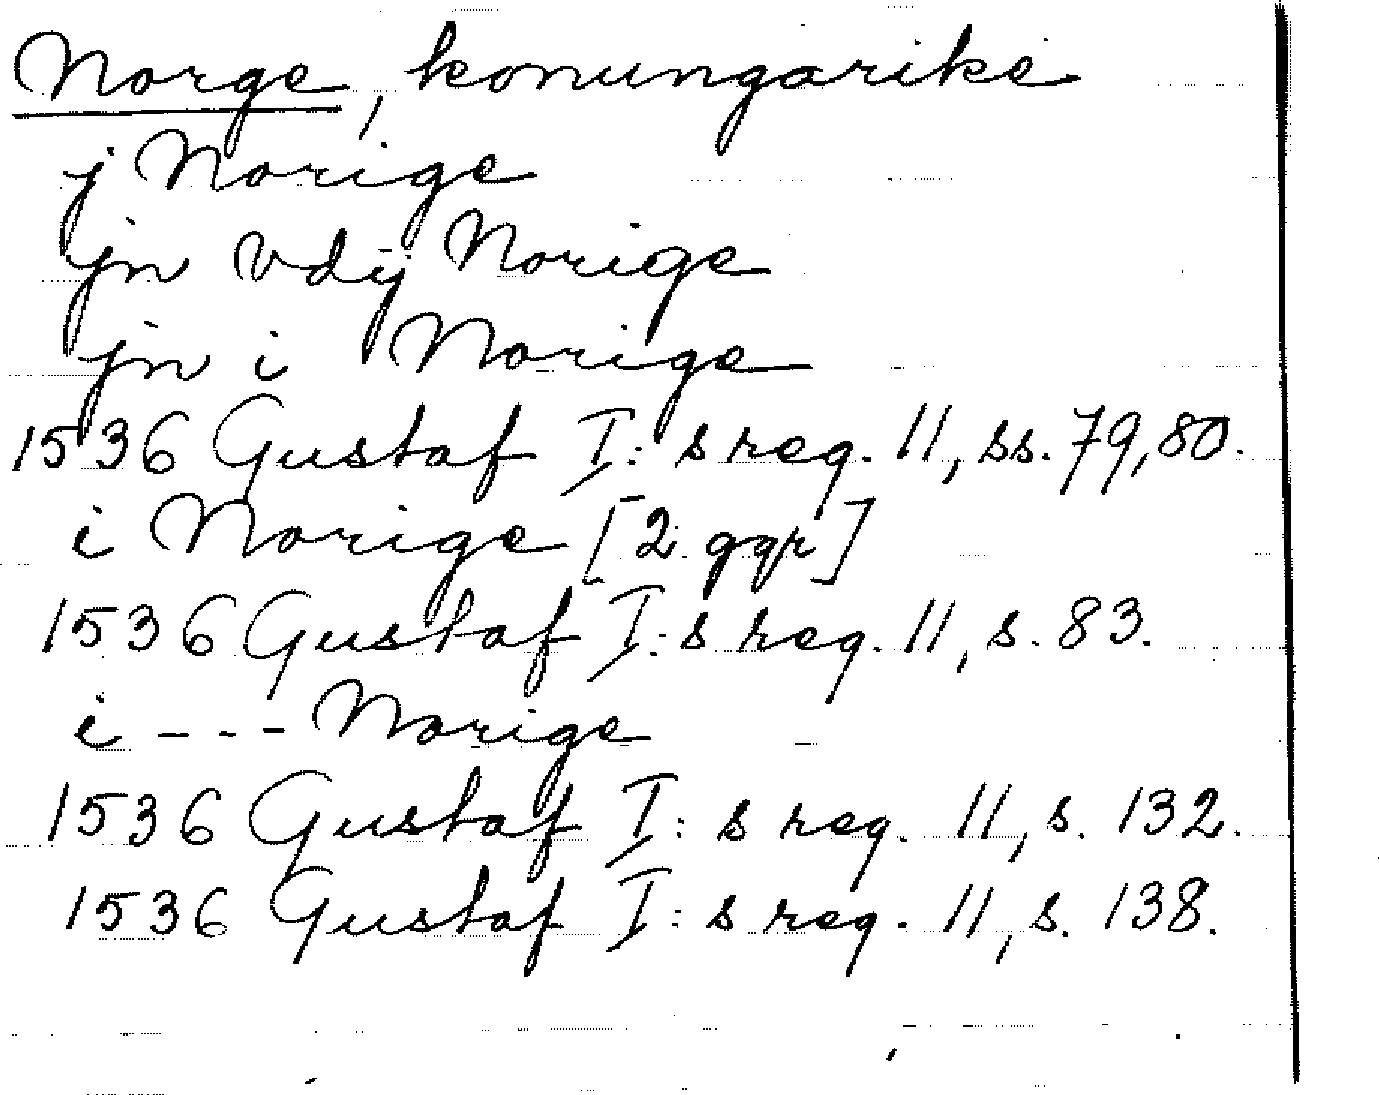 Norge, konungarike
j Norige
jn vdij Norige
jn i Norige
1536 Gustaf I:s reg. 11, ss. 79, 80.
i Norige [2 ggr]
1536 Gustaf I:s reg. 11, s. 83.
i --- Norige
1536 Gustaf I:s reg. 11, s. 132.
1536 Gustaf I:s reg. 11, s. 138.